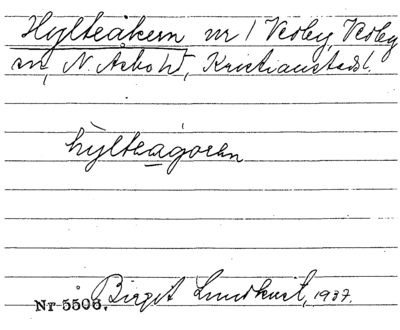 Hylteåkern nr 1 Verby, Verby
sn, N. Åsbo hd, Kristianstads l.
hylteagorln
Nr 5506. Birgit Lundkvist, 1937.